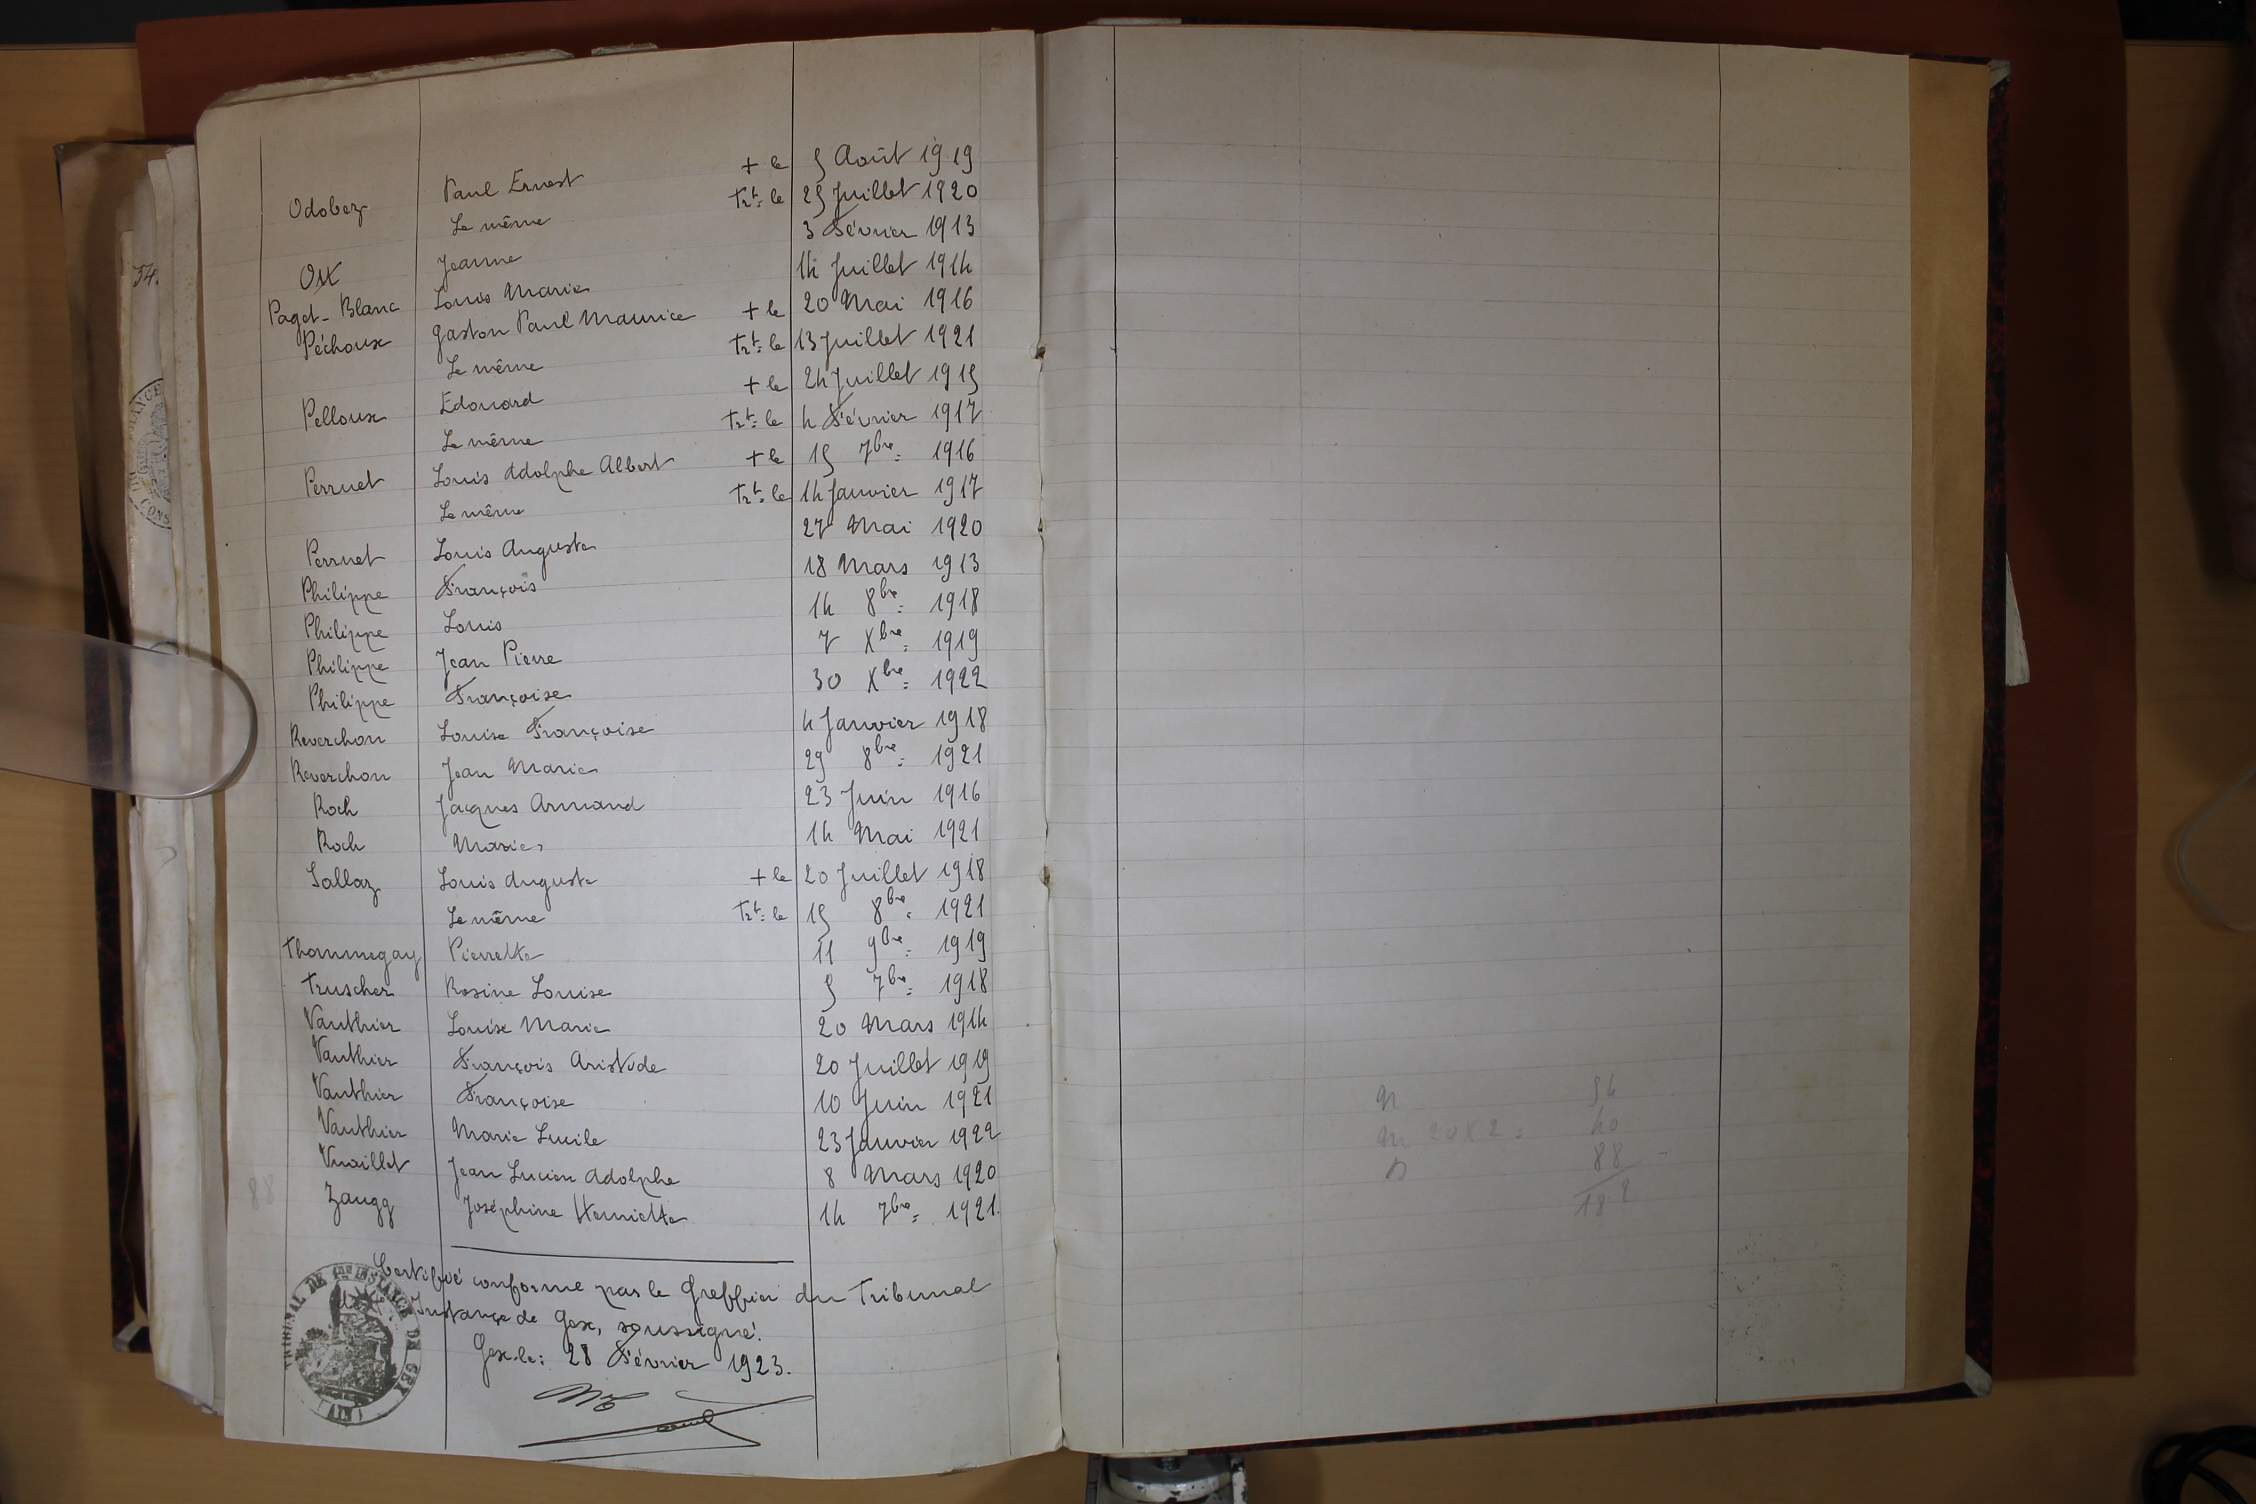 Odobez Paul Ernest + le 5 Août 1919
Le même Trt= le 25 Juillet 1920
Ott Jeanne 3 Février 1913
Paget-Blanc Louis Marie 14 Juillet 1914
Péchoux Gaston Paul Maurice + le 20 Mai 1916
Le même Trt= le 13 Juillet 1921
Pelloux Edouard + le 24 Juillet 1915
Le même Trt= le 4 Février 1917
Perruet Louis Adolphe Albert + le 15 7bre= 1916
Le même Trt= le 14 Janvier 1917
Perruet Louis Auguste 27 Mai 1920
Philippe François 18 Mars 1913
Philippe Louis 14 8bre= 1918
Philippe Jean Pierre 7 Xbre= 1919
Philippe Françoise 30 Xbre= 1922
Reverchon Louise Françoise 4 Janvier 1918
Reverchon Jean Marie 29 8bre= 1921
Roch Jacques Armand 23 Juin 1916
Roch Marie 14 Mai 1921
Sallaz Louis Auguste + le 20 Juillet 1918
Le même Trt= le 15 8bre= 1921
Thommegay Pierrette 11 9bre= 1919
Truscher Rosine Louise 5 7bre= 1918
Vauthier Louise Marie 20 Mars 1914
Vauthier François Aristide 20 Juillet 1919
Vauthier Françoise 10 Juin 1921
Vauthier Marie Lucile 23 Janvier 1922
Vuaillet Jean Lucien Adolphe 8 Mars 1920
88 Zaugg Joséphine Henriette 14 7bre= 1921.
Certifié conforme par le Greffier du Tribunal
de 1re Instance de Gex, soussigné.
Gex-le: 28 Février 1923.
TRIBUNAL DE 1ère INSTANCE DE GEX (AIN)
54.
N 54
M 20 x 2 = 40
D 88
182